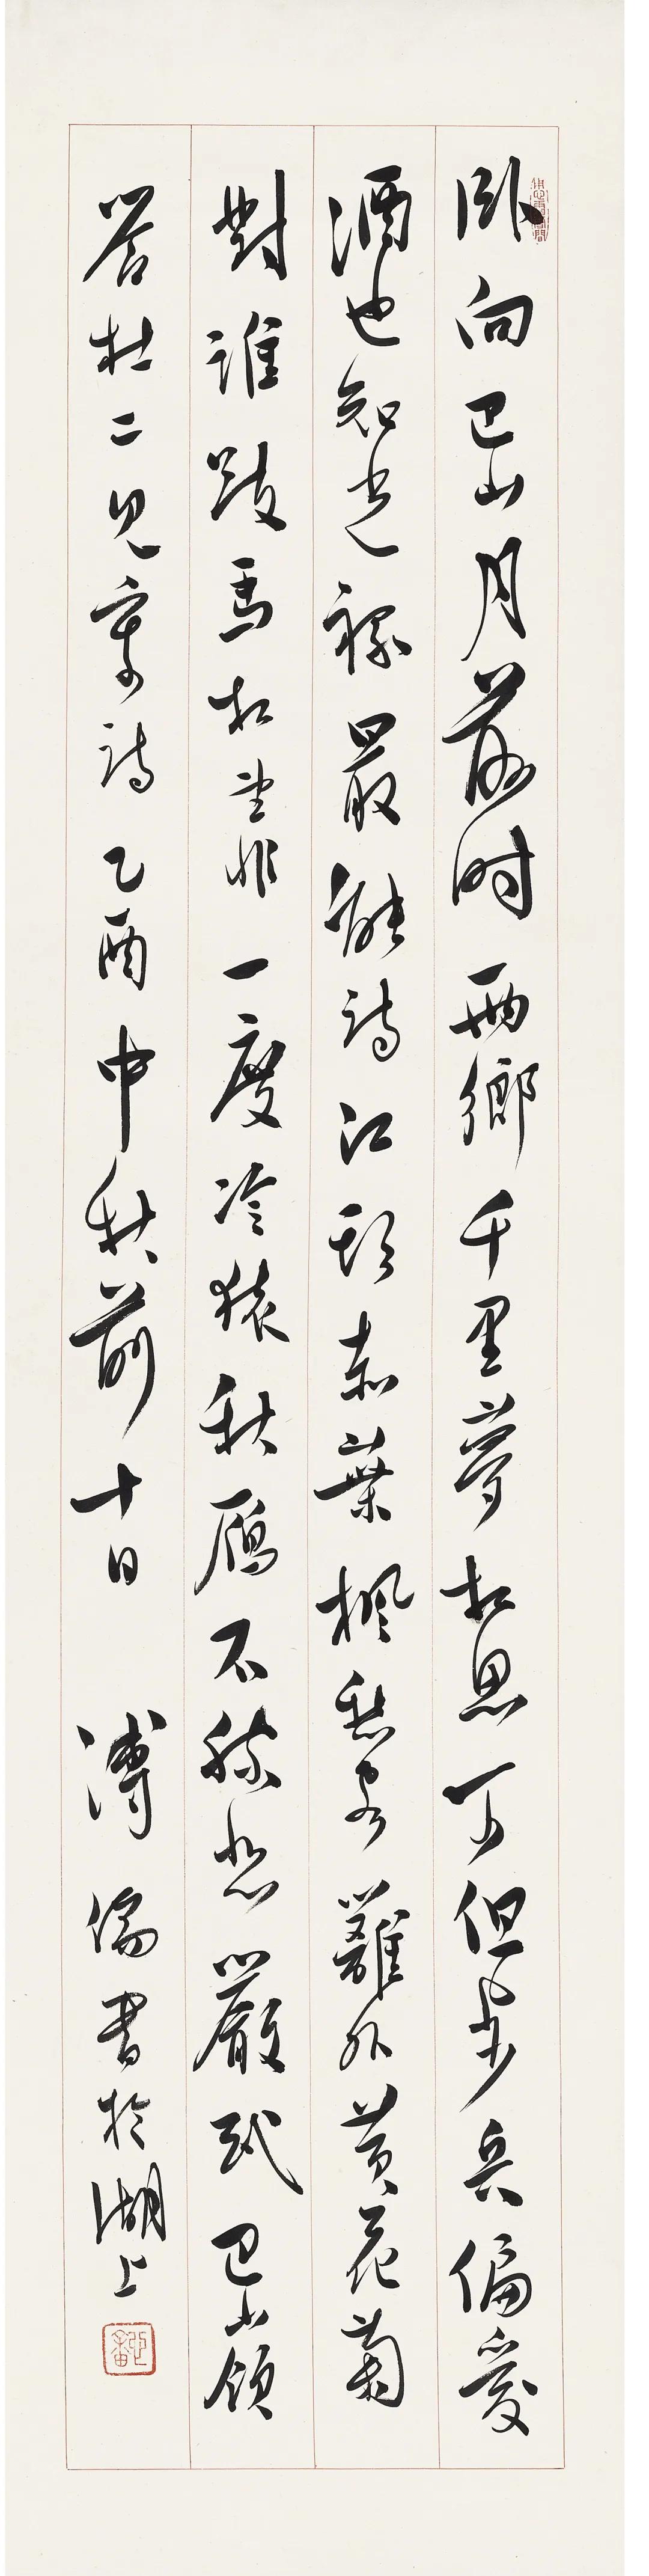 臥向巴山月落時兩鄉千里夢相思可但步兵偏愛
酒也知光祿最能詩江頭赤葉楓愁客籬外黃花菊
對誰跂馬相望非一度冷猿秋鴈不勝悲嚴武巴嶺
答杜二見寄詩乙酉中秋前十日溥儒書於湖上